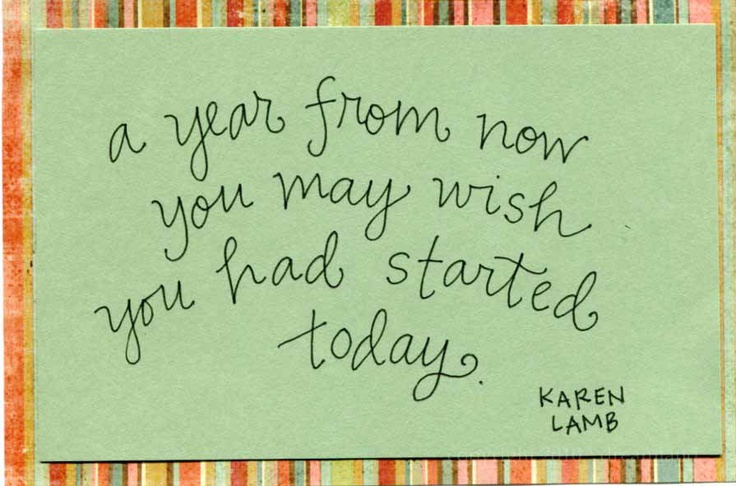 a year from now
you may wish
you had started
today.
KAREN
LAMB